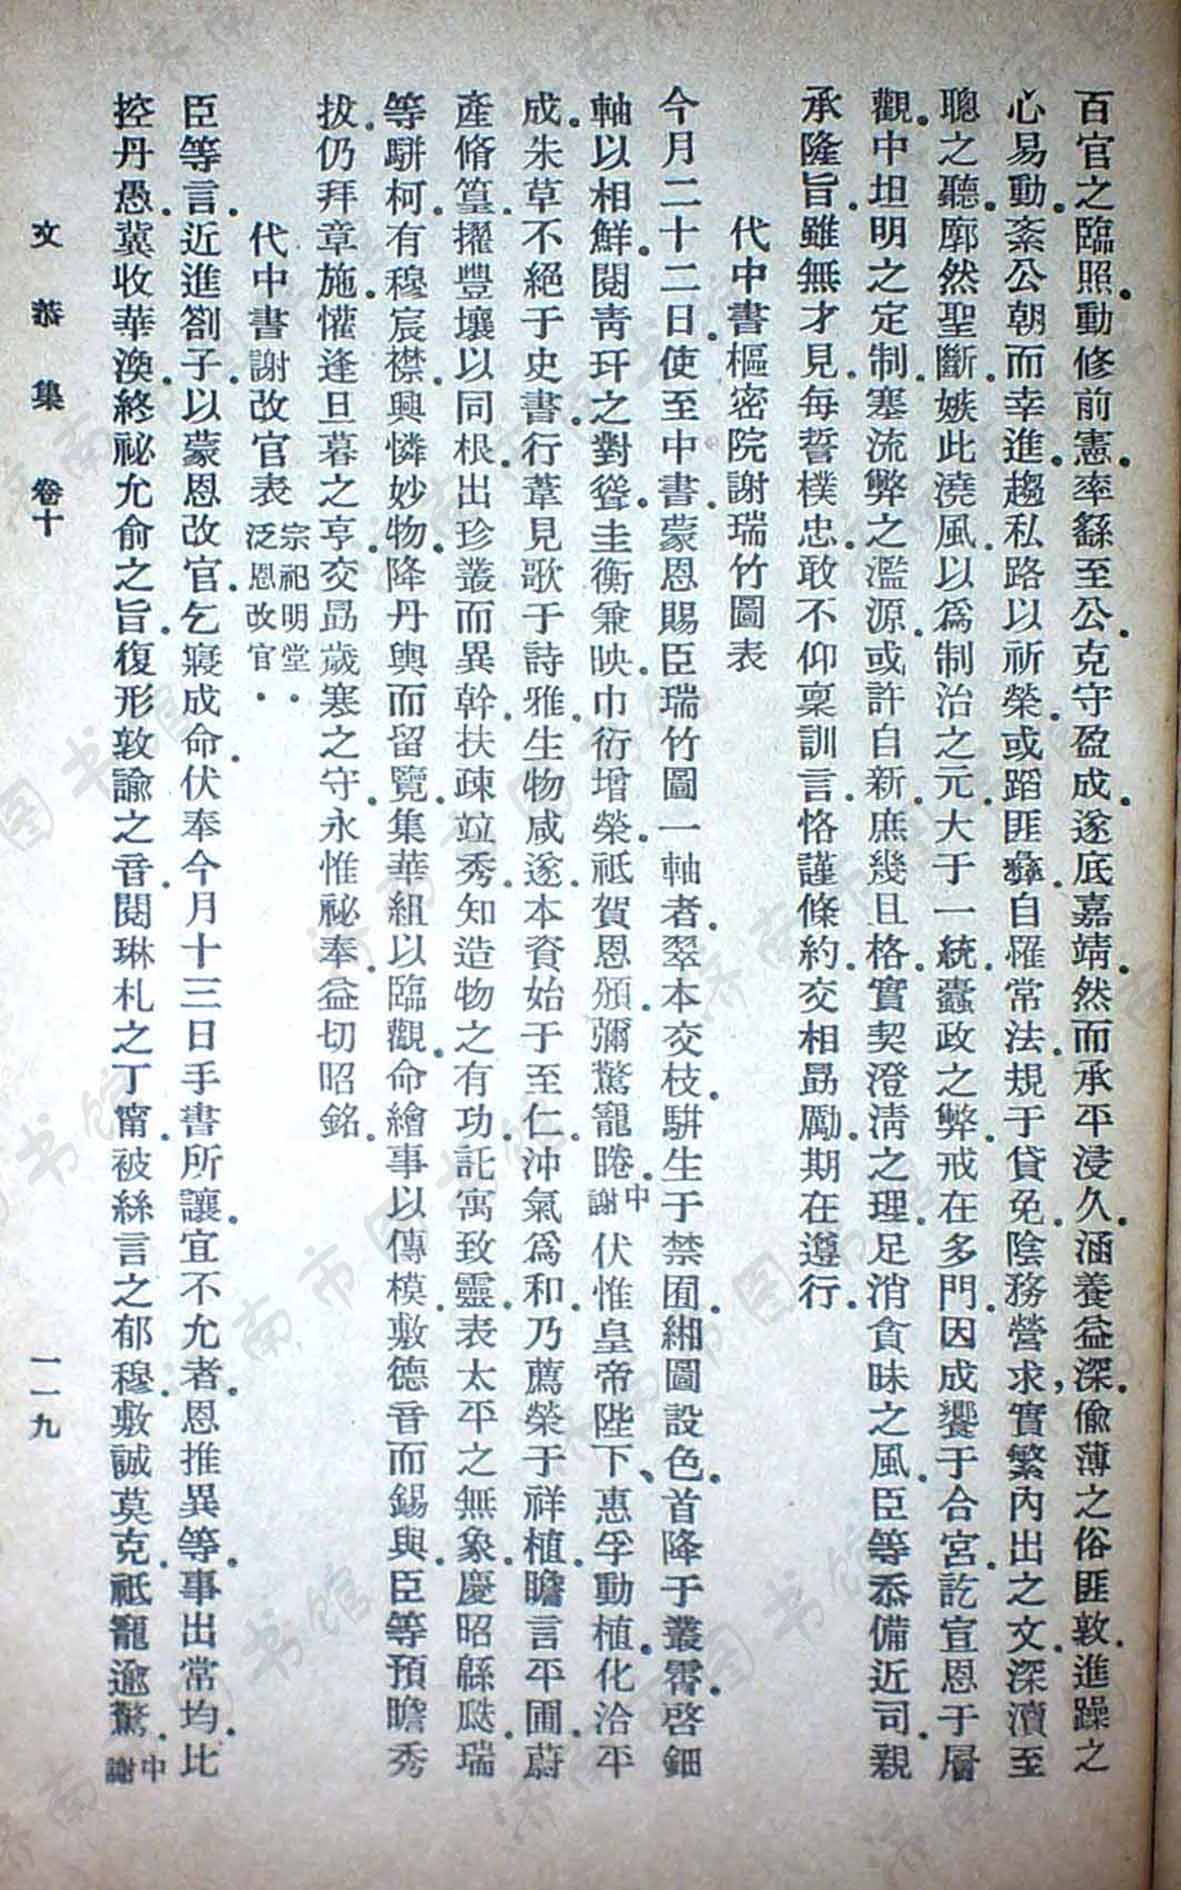 百官之臨照。動修前憲。率繇至公。克守盈成。遂底嘉靖。然而承平浸久。涵養益深。偷薄之俗匪敦。進躁之
心易動。紊公朝而幸進。趨私路以祈榮。或蹈匪彝。自罹常法。規于貸免。陰務營求。實繁內出之文。深瀆至
聰之聽。廓然聖斷。嫉此澆風。以爲制治之元。大于一統。蠹政之弊。戒在多門。因成饗于合宮。訖宣恩于層
觀。中坦明之定制。塞流弊之濫源。或許自新。庶幾且格。實契澄清之理。足消貪昧之風。臣等忝備近司。親
承隆旨。雖無才見。每誓樸忠。敢不仰稟訓言。恪謹條約。交相勗勵。期在遵行。
代中書樞密院謝瑞竹圖表
今月二十二日。使至中書。蒙恩賜臣瑞竹圖一軸者。翠本交枝。騈生于禁囿。緗圖設色。首降于叢霄。啓鈿
軸以相鮮。閱青玕之對聳。圭衡兼映。巾衍增榮。祇賀恩頒。彌驚寵睠。中謝伏惟皇帝陛下、惠孚動植。化洽平
成。朱草不絕于史書。行葦見歌于詩雅。生物咸遂。本資始于至仁。沖氣爲和。乃薦榮于祥植。瞻言平圃。蔚
產脩篁。擢豐壤以同根。出珍叢而異幹。扶疎竝秀。知造物之有功。託寓致靈。表太平之無象。慶昭緜瓞。瑞
等騈柯。有穆宸襟。興憐妙物。降丹輿而留覽。集華組以臨觀。命繪事以傳模。敷德音而錫與。臣等預瞻秀
拔。仍拜章施。懽逢旦暮之亨。交勗歲寒之守。永惟祕奉。益切昭銘。
代中書謝改官表宗祀明堂。泛恩改官。
臣等言。近進劄子。以蒙恩改官。乞寢成命。伏奉今月十三日手書。所讓宜不允者。恩推異等。事出常均。比
控丹愚。冀收華渙。終祕允俞之旨。復形敦諭之音。閱琳札之丁甯。被絲言之郁穆。敷誠莫克。祇寵逾驚。中謝
文恭集 卷十 一一九